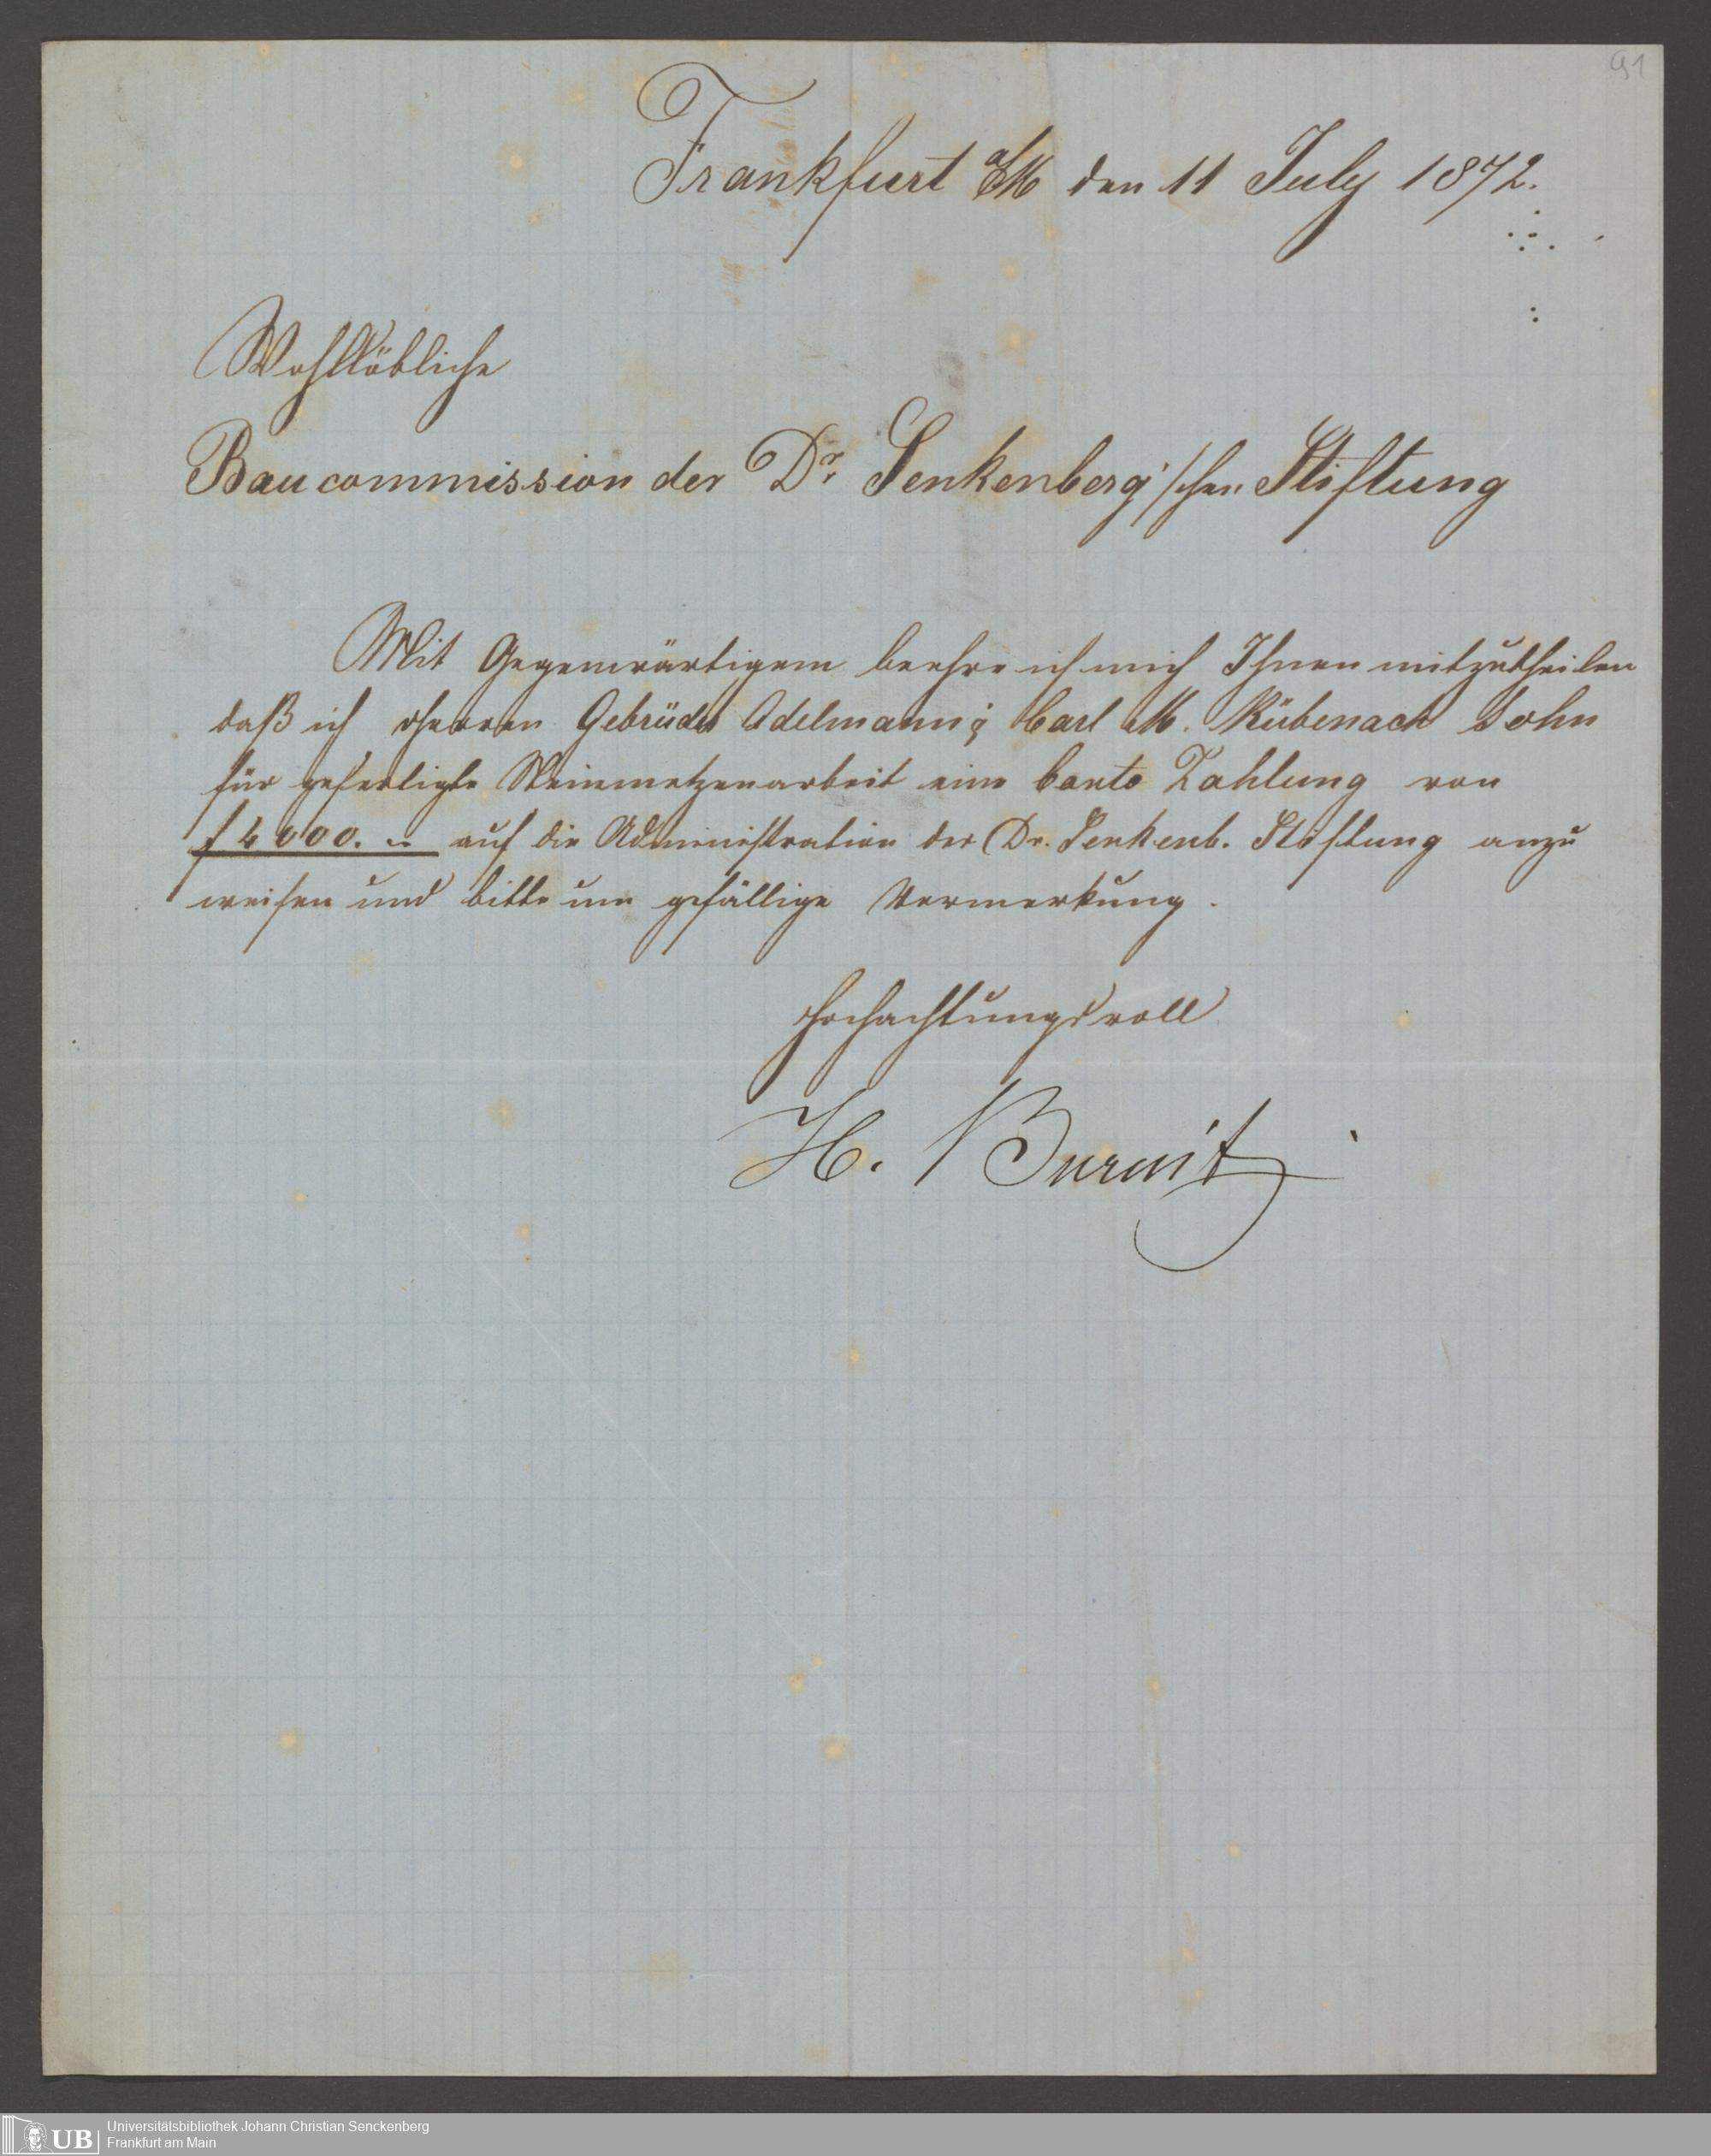 91
Frankfurt a/M den 11 July 1872.
Wohllöbliche
Baucommission der Dr. Senkenberg'schen Stiftung
Mit Gegenwärtigem beehre ich mich Ihnen mitzutheilen
daß ich Herren Gebrüder Adelmann & Carl M. Rübenach Sohn
für gefertigte Steinmetzenarbeit eine Conto Zahlung von
f 4000. - auf die Administration der Dr. Senkenb. Stiftung anzu
weisen und bitte um gefällige Vormerkung.
Hochachtungsvoll
H. Burnitz
UB
Universitätsbibliothek Johann Christian Senckenberg
Frankfurt am Main